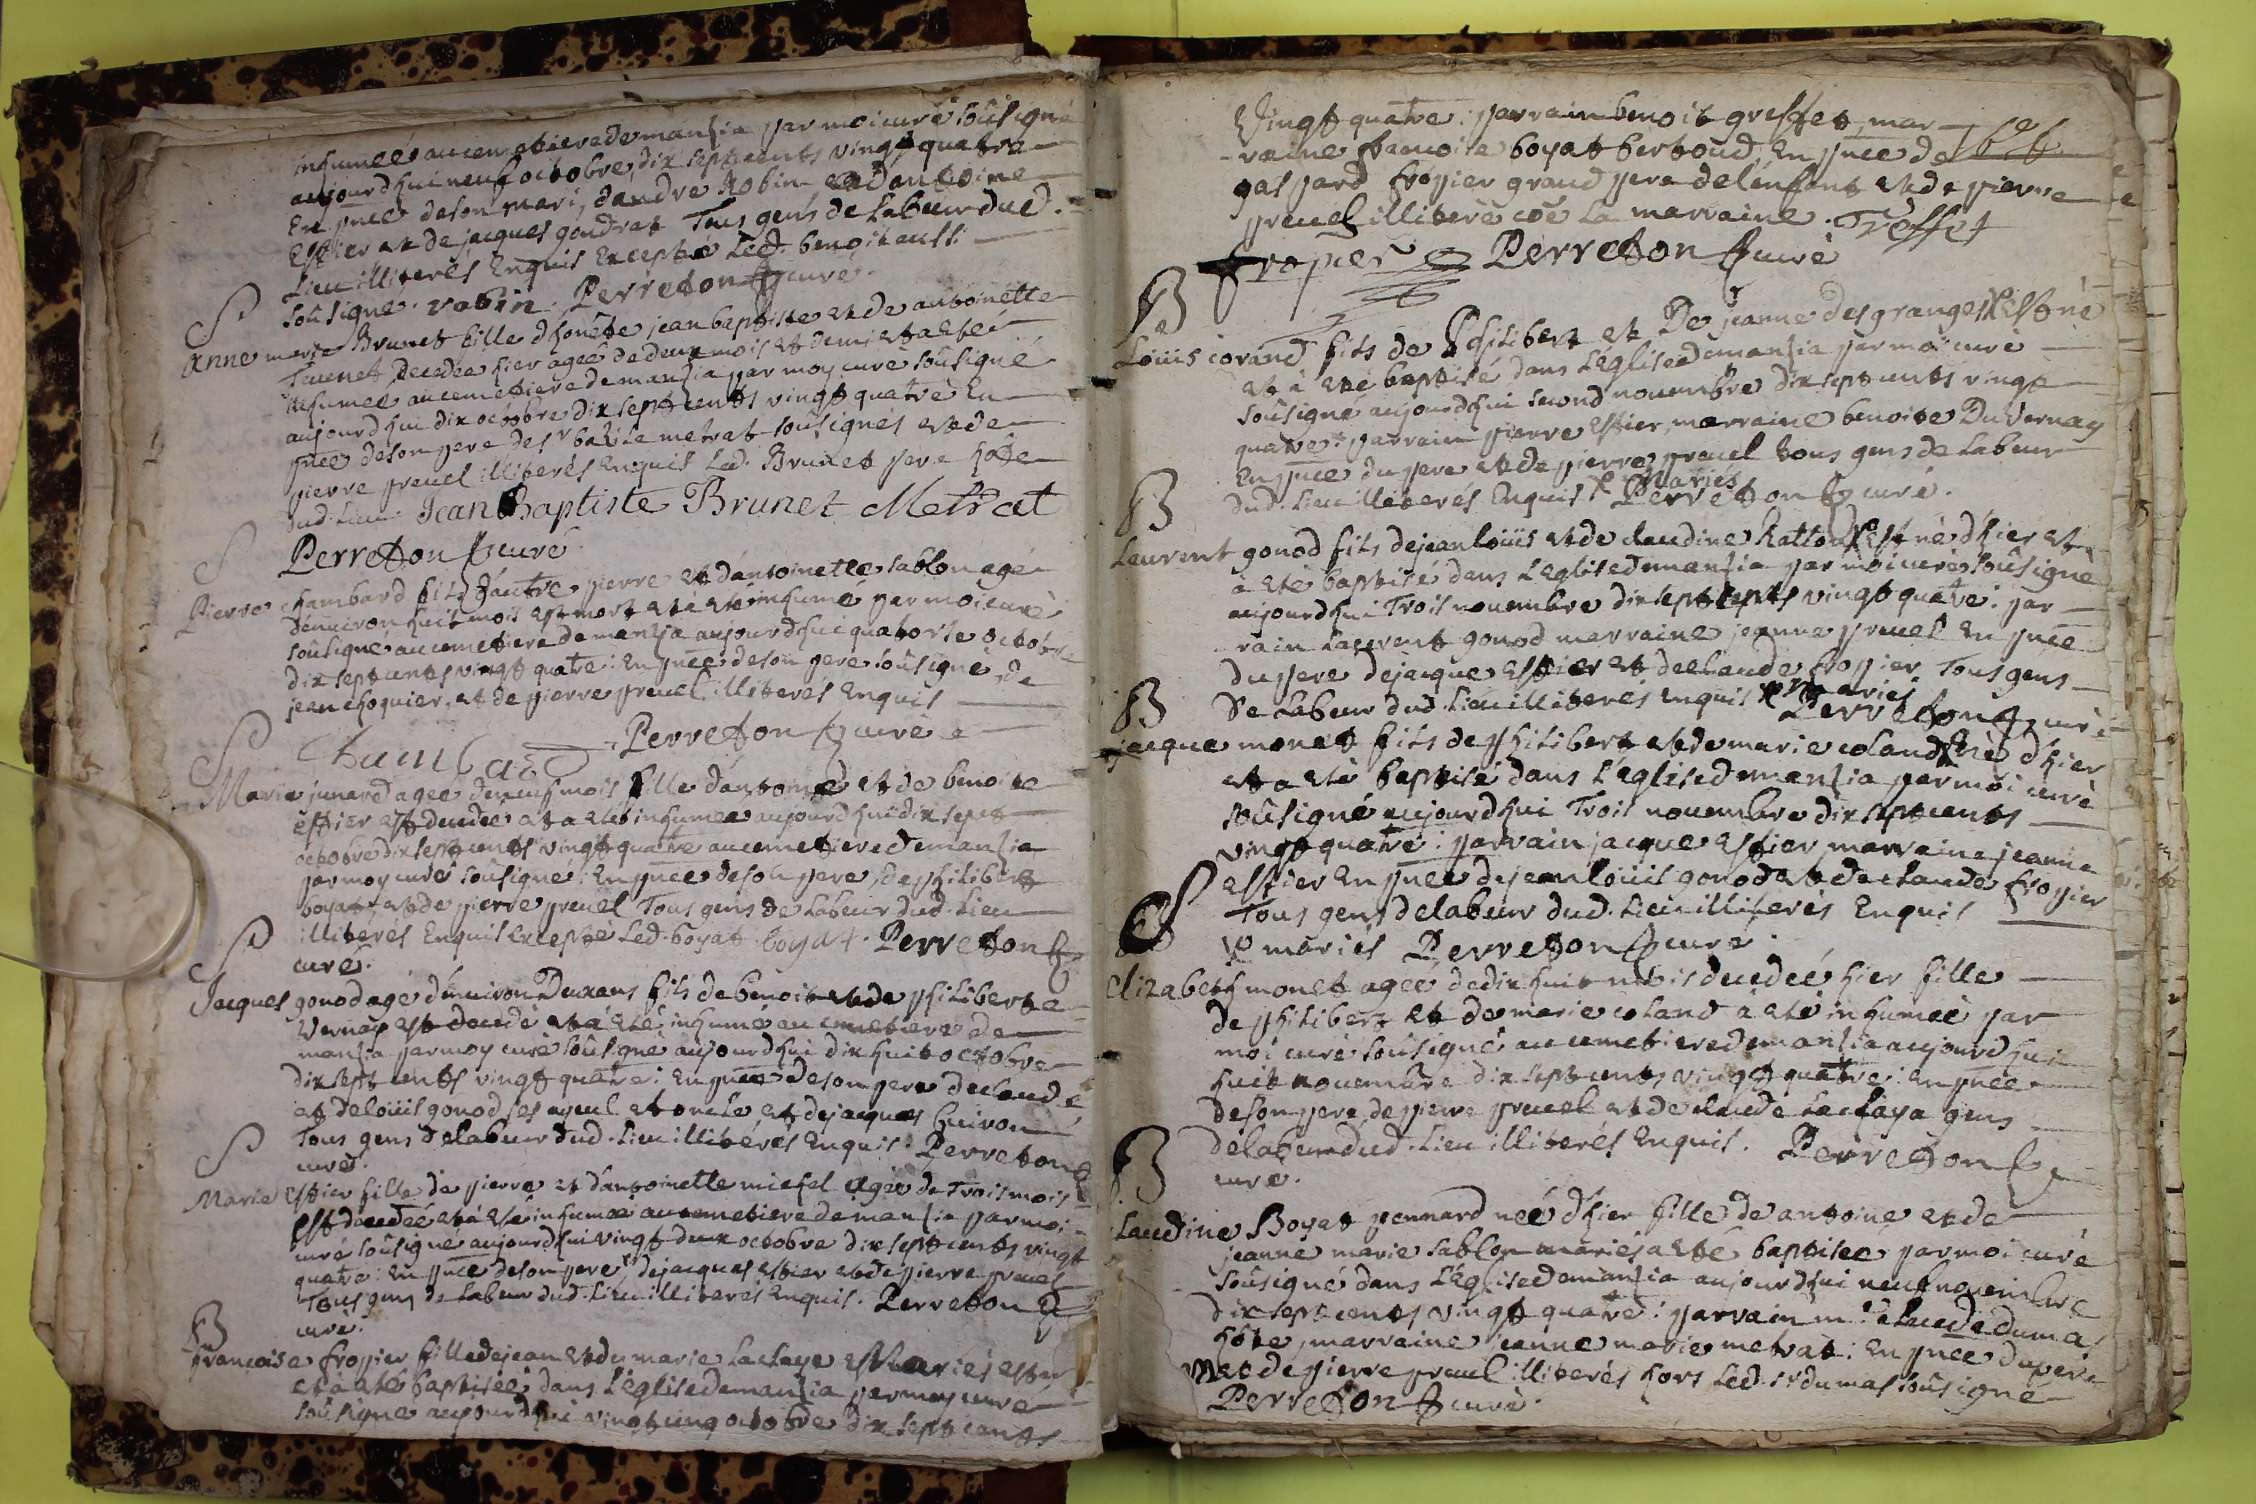 inhumeé au cemetiere de manzia par moi curé soûsigné
aujourd'hui neuf octobre dix sept cents vingt quatre
En pnce de son mari, dandre Robin et dantoine
Estier et de jacques goudrat Tous gens de Labeur dud.
Lieu illiterés Enquis Excepté Led. benoit aussi
soûsigné. robin. Perreton curé.
S
anne marie Brunet fille d'honête jean baptiste et de antoinette
Teunet decedée hier agée de deux mois et demi et a eté
inhumeé au cemetiere de manzia par moy curé soûsigné
aujourd'hui dix octobre dix sept cents vingt quatre En
pnce de son pere des Le metrat soûsignés et de
pierre preuel illiterés Enquis Led. Brunet pere hôte
dud. Lieu. Jean Baptiste Brunet Metrat
Perreton curé
S
Pierre chambard fils d'autre pierre et d'antoinette sablon agé
d'environ huit mois est mort et a eté inhumé par moi curé
soûsigné au cemetiere de manzia aujourd'hui quatorse octobre
dix sept cents vingt quatre: En pnce de son pere soûsigné, de
jean choquier, et de pierre preuel illiterés Enquis
Chambard Perreton curé
S
Marie junard agée de neuf mois fille d'antoine et de benoite
estier est decedée et a eté inhumeé aujourd'hui dix sept
octobre dix sept cents vingt quatre au cemetiere de manzia
par moy curé soûsigné: En pnce de son pere, de philibert
boyat, et de pierre preuel Tous gens de Labeur dud. Lieu
illiterés Enquis Excepté Led. boyat. boyat. Perreton
curé.
S
Jacques gonod agé d'environ Deux ans fils de benoit et de philiberte
Vernay est decedé et a eté inhumé au cemetiere de
manzia par moy curé soûsigné aujourd'hui dix huit octobre
dix sept cents vingt quatre: En pnce de son pere de claude
et de loüis gonod ses ayeul et oncle et de jacques buiron
Tous gens de labeur dud. Lieu illiterés Enquis. Perreton
curé.
S
Marie Estier fille de pierre et d'antoinette michel agée de Trois mois
est decedeé et a eté inhumeé au cemetiere de manzia par moi
curé soûsigné aujourd'hui vingt deux octobre dix sept cents vingt
quatre: En pnce de son pere de jacques estier et de pierre preuel
Tous gens de Labeur dud. Lieu illiterés Enquis. Perreton
curé.
B
françoise fropier fille de jean et de marie Lachaye mariés est
et à eté baptisée dans L'Eglise de manzia par moy curé
soûsigné aujourd'hui vingt cinq octobre dix sept cents
Vingt quatre: parrain benoit greffet, mar-
-raine francoise boyat bertoud, En pnce de
gaspard fropier grand pere de lenfant et de pierre
preuel illiteré côe La marraine. Treffet
fropier Perreton curé
B
Loüis corand fils de Philibert et De jeanne desgranges Est né
et à eté baptisé dans L'Eglise de manzia par moi curé
soûsigné aujourd'hui second nouembre dix sept cents vingt
quatre: parrain pierre Estier, marraine benoite Du Vernay
En pnce du pere et de pierre preuel tous gens de Labeur
dud. Lieu illiterés Enquis mariés Perreton curé.
B
Laurent gonod fils de jean loüis et de claudine Ratton Est né d'hier et
à eté baptisé dans L'Eglise de manzia par moi curé soûsigné
aujourd'hui Trois nouembre dix sept cents vingt quatre: par
-rain Laurent gonod marraine jeanne preuel En pnce
du pere de jacque estier et de claude fropier Tous gens
De Labeur dud. Lieu illiterés Enquis mariés Perreton curé
B
jacque monet fils de philibert et de marie coland né d'hier
et a eté baptisé dans L'Eglise de manzia par moi curé
soûsigné aujourd'hui Trois nouembre dix sept cents
vingt quatre: parrain jacque estier marraine jeanne
estier En pnce de jean loüis gonod et de claude fropier
Tous gens de labeur dud. Lieu illiterés Enquis
mariés Perreton curé.
S
Elizabeth monet ageé de dix huit mois decedeé hier fille
de philibert et de marie coland à eté inhumeé par
moi curé soûsigné au cemetiere de manzia aujourd'hui
huit nouembre dix sept cents vingt quatre: En pnce
de son pere, de pierre preuel et de claude Lachaya gens
de labeur dud. Lieu illiterés Enquis. Perreton
curé.
B
Laudine Boyat pennard neé d'hier fille de antoine et de
jeanne marie sablon mariés a eté baptiseé par moi curé
soûsigné dans L'Eglise de manzia aujourd'hui neuf nouembre
dix sept cents vingt quatre: parrain m.e claude dumas
hôte, marraine jeanne marie metrat: En pnce du pere
et de pierre preuel illiterés hors Led. sr dumas soûsigné
Perreton curé.